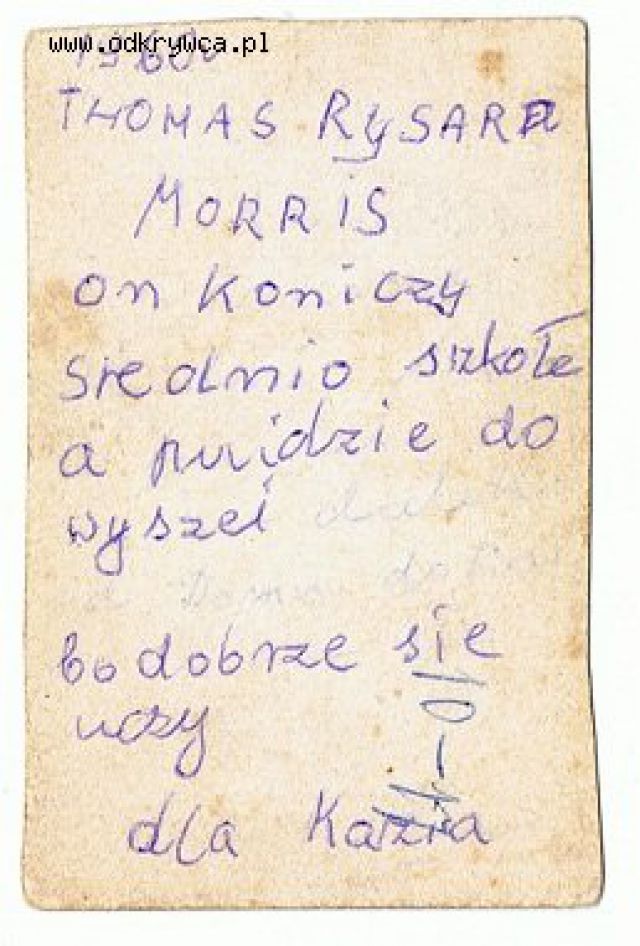 www.odkrywca.pl
1960
THOMAS RYSARD
MORRIS
on koniczy
sriednio szkołe
a puidzie do
wyszei
bo dobrze sie
uczy
dla Kazia